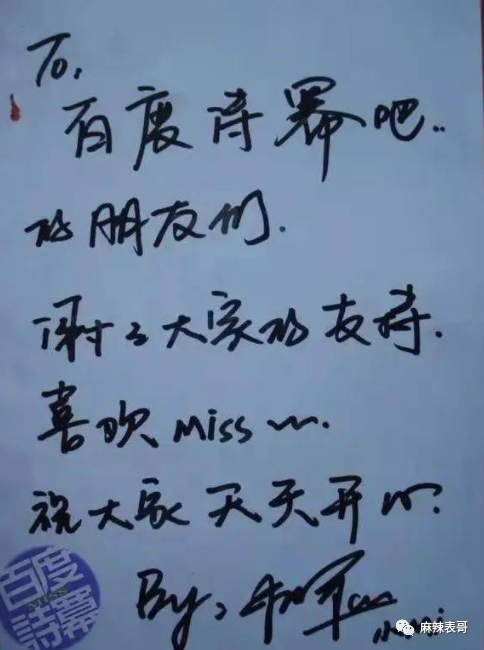 To,
百度诗幂吧..
的朋友们.
谢谢大家的支持.
喜欢Miss~~.
祝大家天天开心.
By,
百度
MISS
詩幂
麻辣表哥